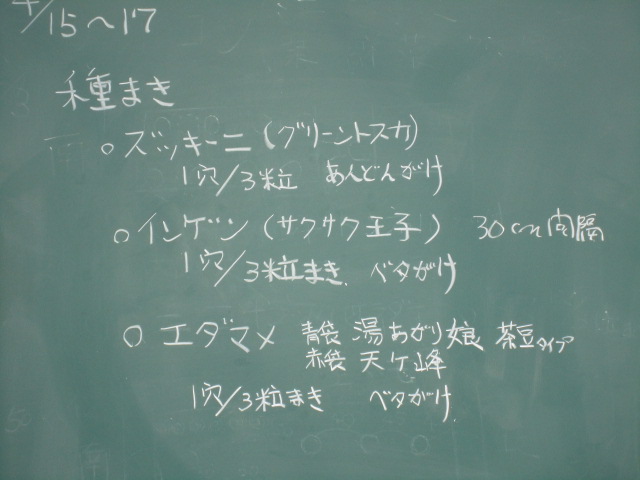 4/15～17
種まき
○ズッキーニ(グリーントスカ)
1穴/3粒 あんどんがけ
○インゲン(サクサク王子) 30cm間隔
1穴/3粒まき. ベタがけ
○エダマメ 青袋 湯あがり娘 茶豆タイプ
赤袋 天ケ峰
1穴/3粒まき ベタがけ.